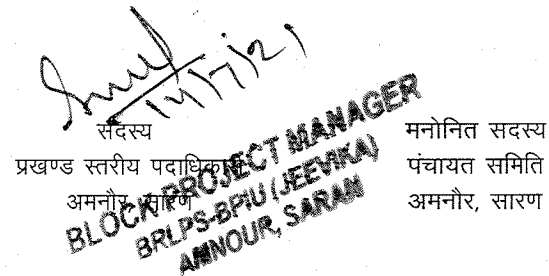 14/7/21
सदस्य
प्रखण्ड स्तरीय पदाधिकारी
अमनौर, सारण
BLOCK PROJECT MANAGER
BRLPS-BPIU (JEEVIKA)
AMNOUR, SARAN
मनोनित सदस्य
पंचायत समिति
अमनौर, सारण